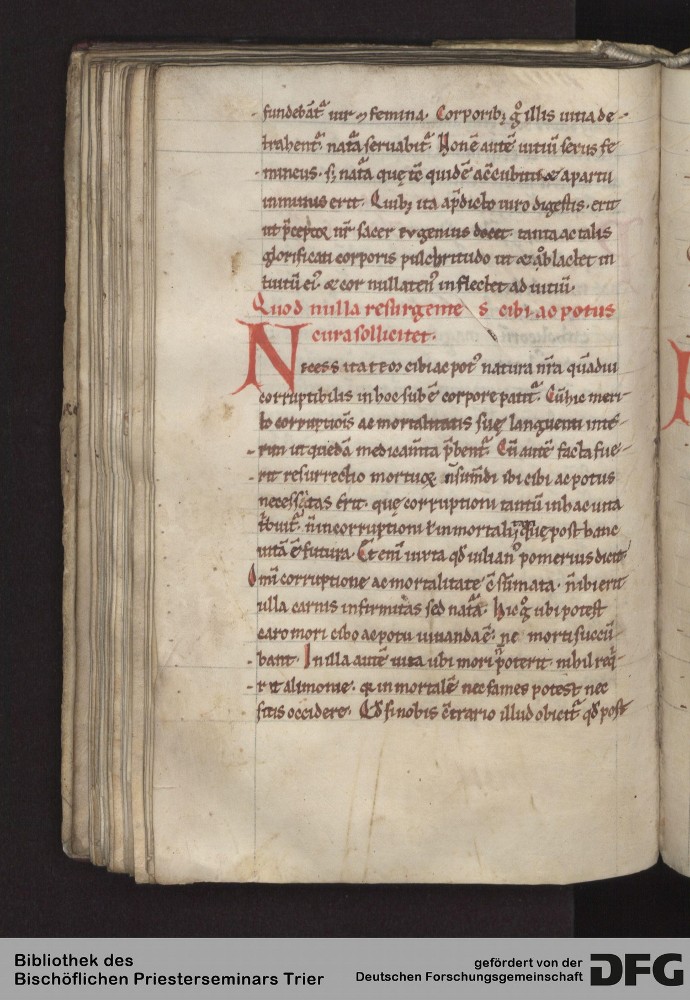 fundebāt᷒ uir ⁊ femina. Corporibꝫ gͦ illis uitia de-
trahent᷒. nat᷒a seruabit᷒. Non ē autē uitiū sexus fe
mineus. sꝫ nat᷒a quę tē quidē a ɔcubitu & a partu
inmunis erit. Quibꝫ ita ap̄dicto uiro digestis. erit
ut p̄ceptoꝝ nr̄ sacer eugenius docet. tanta ac talis
glorificati corporis pulchritudo ut & oblectet in
tuitū ei᷒. & cor nullaten᷒ inflectet ad uitiū.
Quod nulla resurgentes cibi ac potus
cura sollicitet.
Necessitate cibi ac pot᷒ natura nr̄a quādiu
corruptibilis in hoc subē corpore patit᷒. Cū hic meri
to corruptiōis ac mortalitatis suę languenti inte-
rim ut quedā medicam̄ta p̄bent᷒. Cū autē facta fue-
rit resurrectio mortuoꝝ n̄ sum̄di ibi cibi ac potus
necessitas erit. quę corruptioni tantū in hac uita
t᷒buit᷒. n̄ incorruptioni ł inmortali quę post hanc
uitā ē futura. Et eni᷒ iuxta qd̄ iulian᷒ pomerius dicit.
Omi᷒ corruptione ac mortalitate ɔsūmata. n̄ ibi erit
ulla carnis infirmitas sed nat᷒a. Hic gͦ ubi potest
caro mori cibo ac potu uiuanda ē. ne morti succū-
bant. In illa autē uita ubi mori n̄ poterit. nihil req᷒-
rit alimonie. q᷒ inmortalē nec fames potest nec
sitis occidere. Qd̄ si nobis ɔtrario illud obicit᷒ qd̄ post
Bibliothek des
Bischöflichen Priesterseminars Trier
gefördert von der
Deutschen Forschungsgemeinschaft DFG